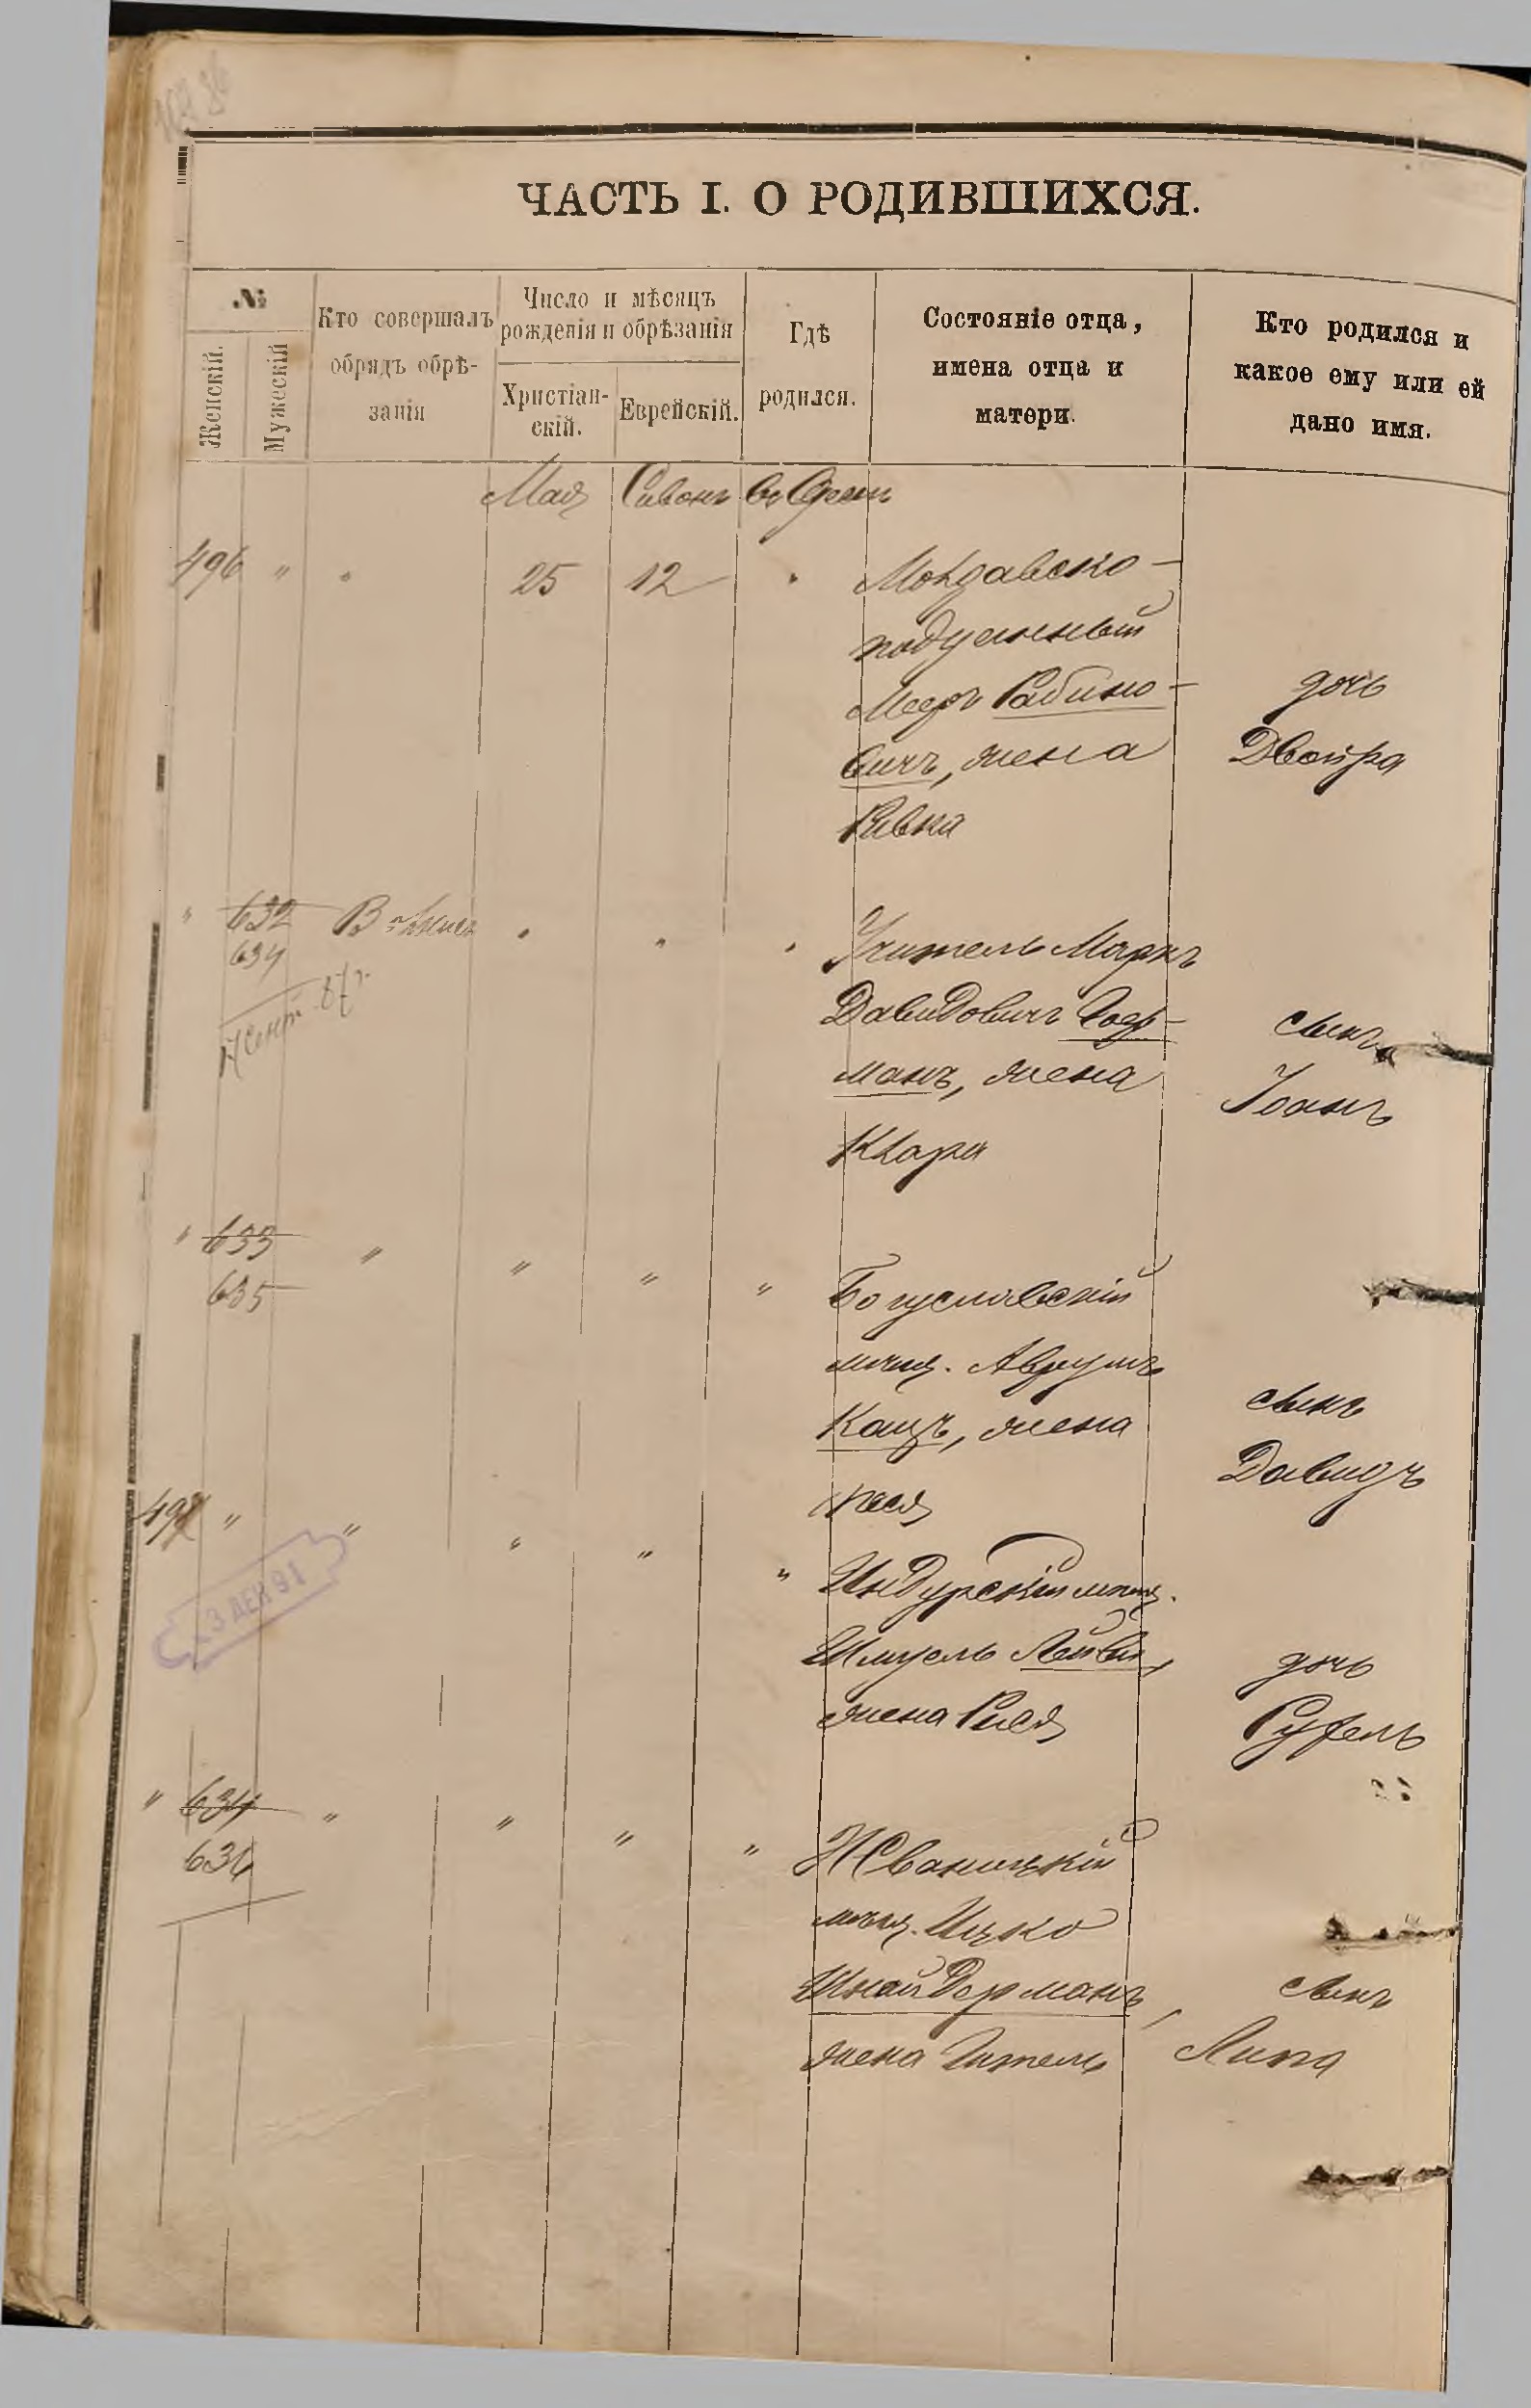 ЧАСТЬ I. О РОДИВШИХСЯ.
№
Женскій.
Мужескій
Кто совершалъ
обрядъ обрѣ-
занія
Число и мѣсяцъ
рожденія и обрѣзанія
Христіан-
скій.
Еврейскій.
Гдѣ
родился.
Состояніе отца,
имена отца и
матери.
Кто родился и
какое ему или ей
дано имя.
Мая Сивонъ въ Одессѣ
496 " " 25 12 "
Молдавско-
подданный
Мееръ Рабино-
вичъ, жена
Ривка
дочь
Двойра
" 632
634
" " "
Учитель Маркъ
Давидовичъ Гоер-
манъ, жена
Клара
сынъ
Іоанъ
" 633 " " " "
635
Богуславскій
мѣщ. Аврумъ
Кацъ, жена
Песя
сынъ
Давидъ
497 " " " " "
3 ДЕК 91
Индурскій мѣщ.
Шмуель Лейвi,
жена Рися
дочь
Рухель
" 634 " " " "
636
Жванецкій
мѣщ. Ицко
Шнайдерманъ,
жена Гитель
сынъ
Липа